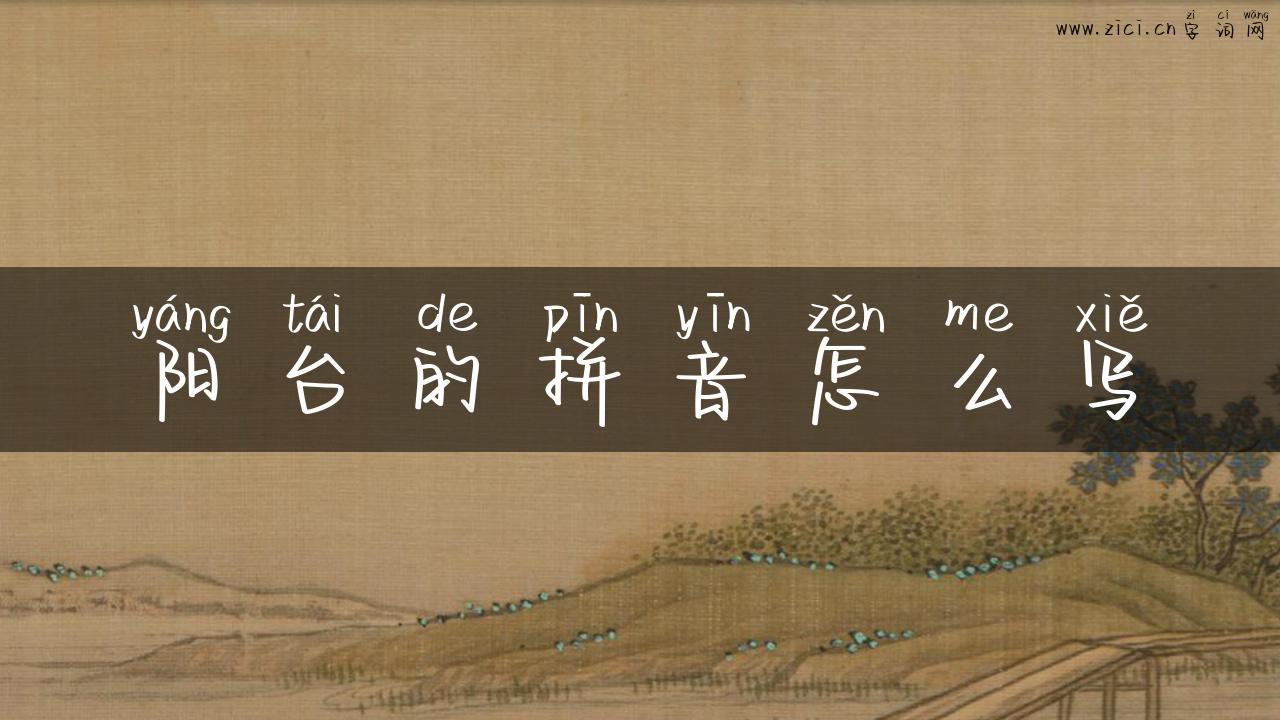 zì cí wǎng
www.zici.cn字词网
yáng tái de pīn yīn zěn me xiě
阳台的拼音怎么写